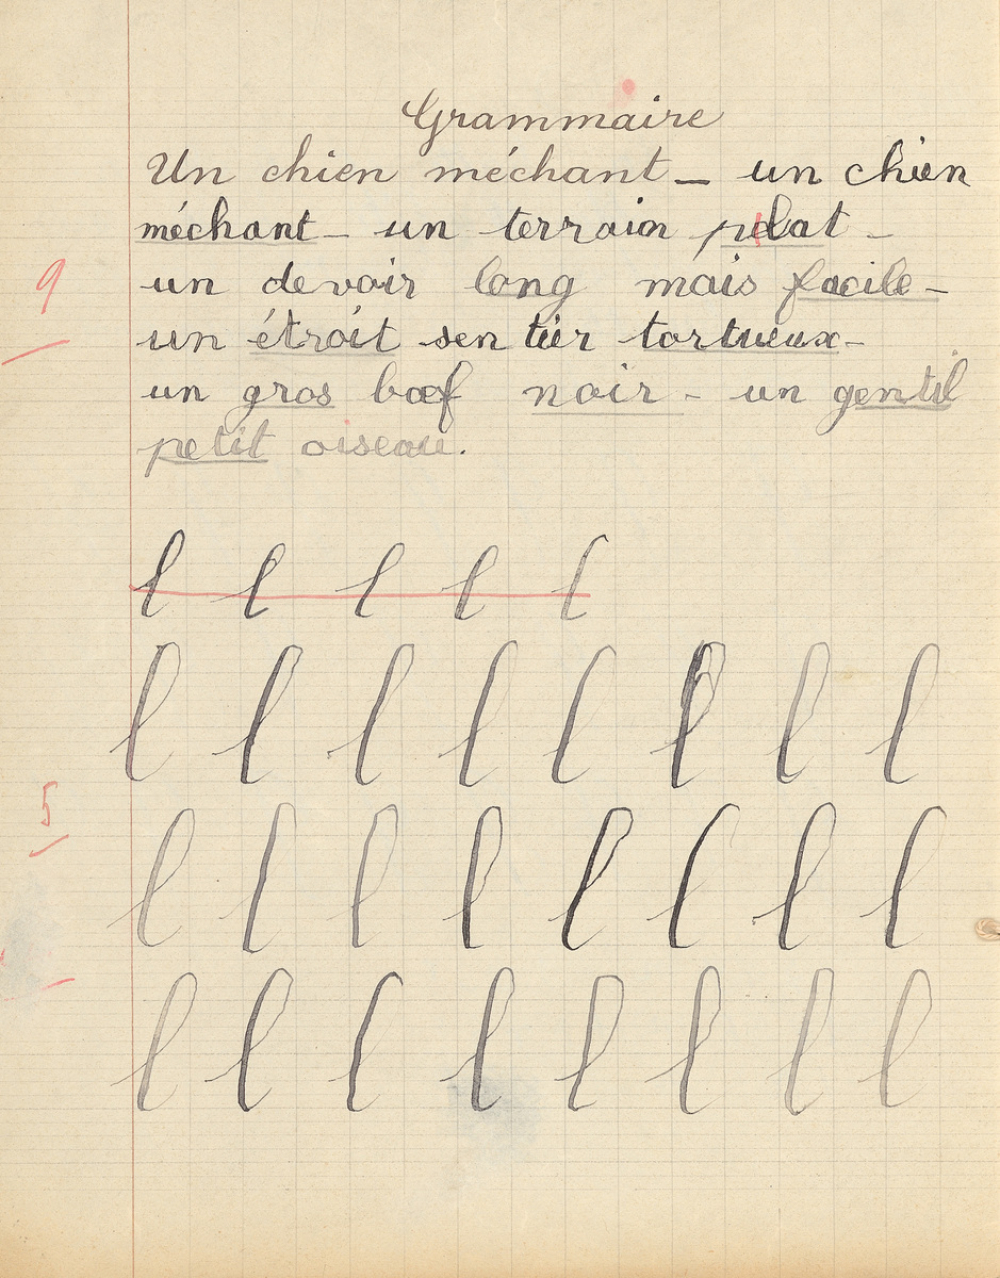 Grammaire
Un chien méchant – un chien
méchant – un terrain plat –
9
un devoir long mais facile –
un étroit sentier tortueux –
un gros bœf noir – un gentil
petit oiseau.
l l l l l
l l l l l l l l
5
l l l l l l l l
l l l l l l l l